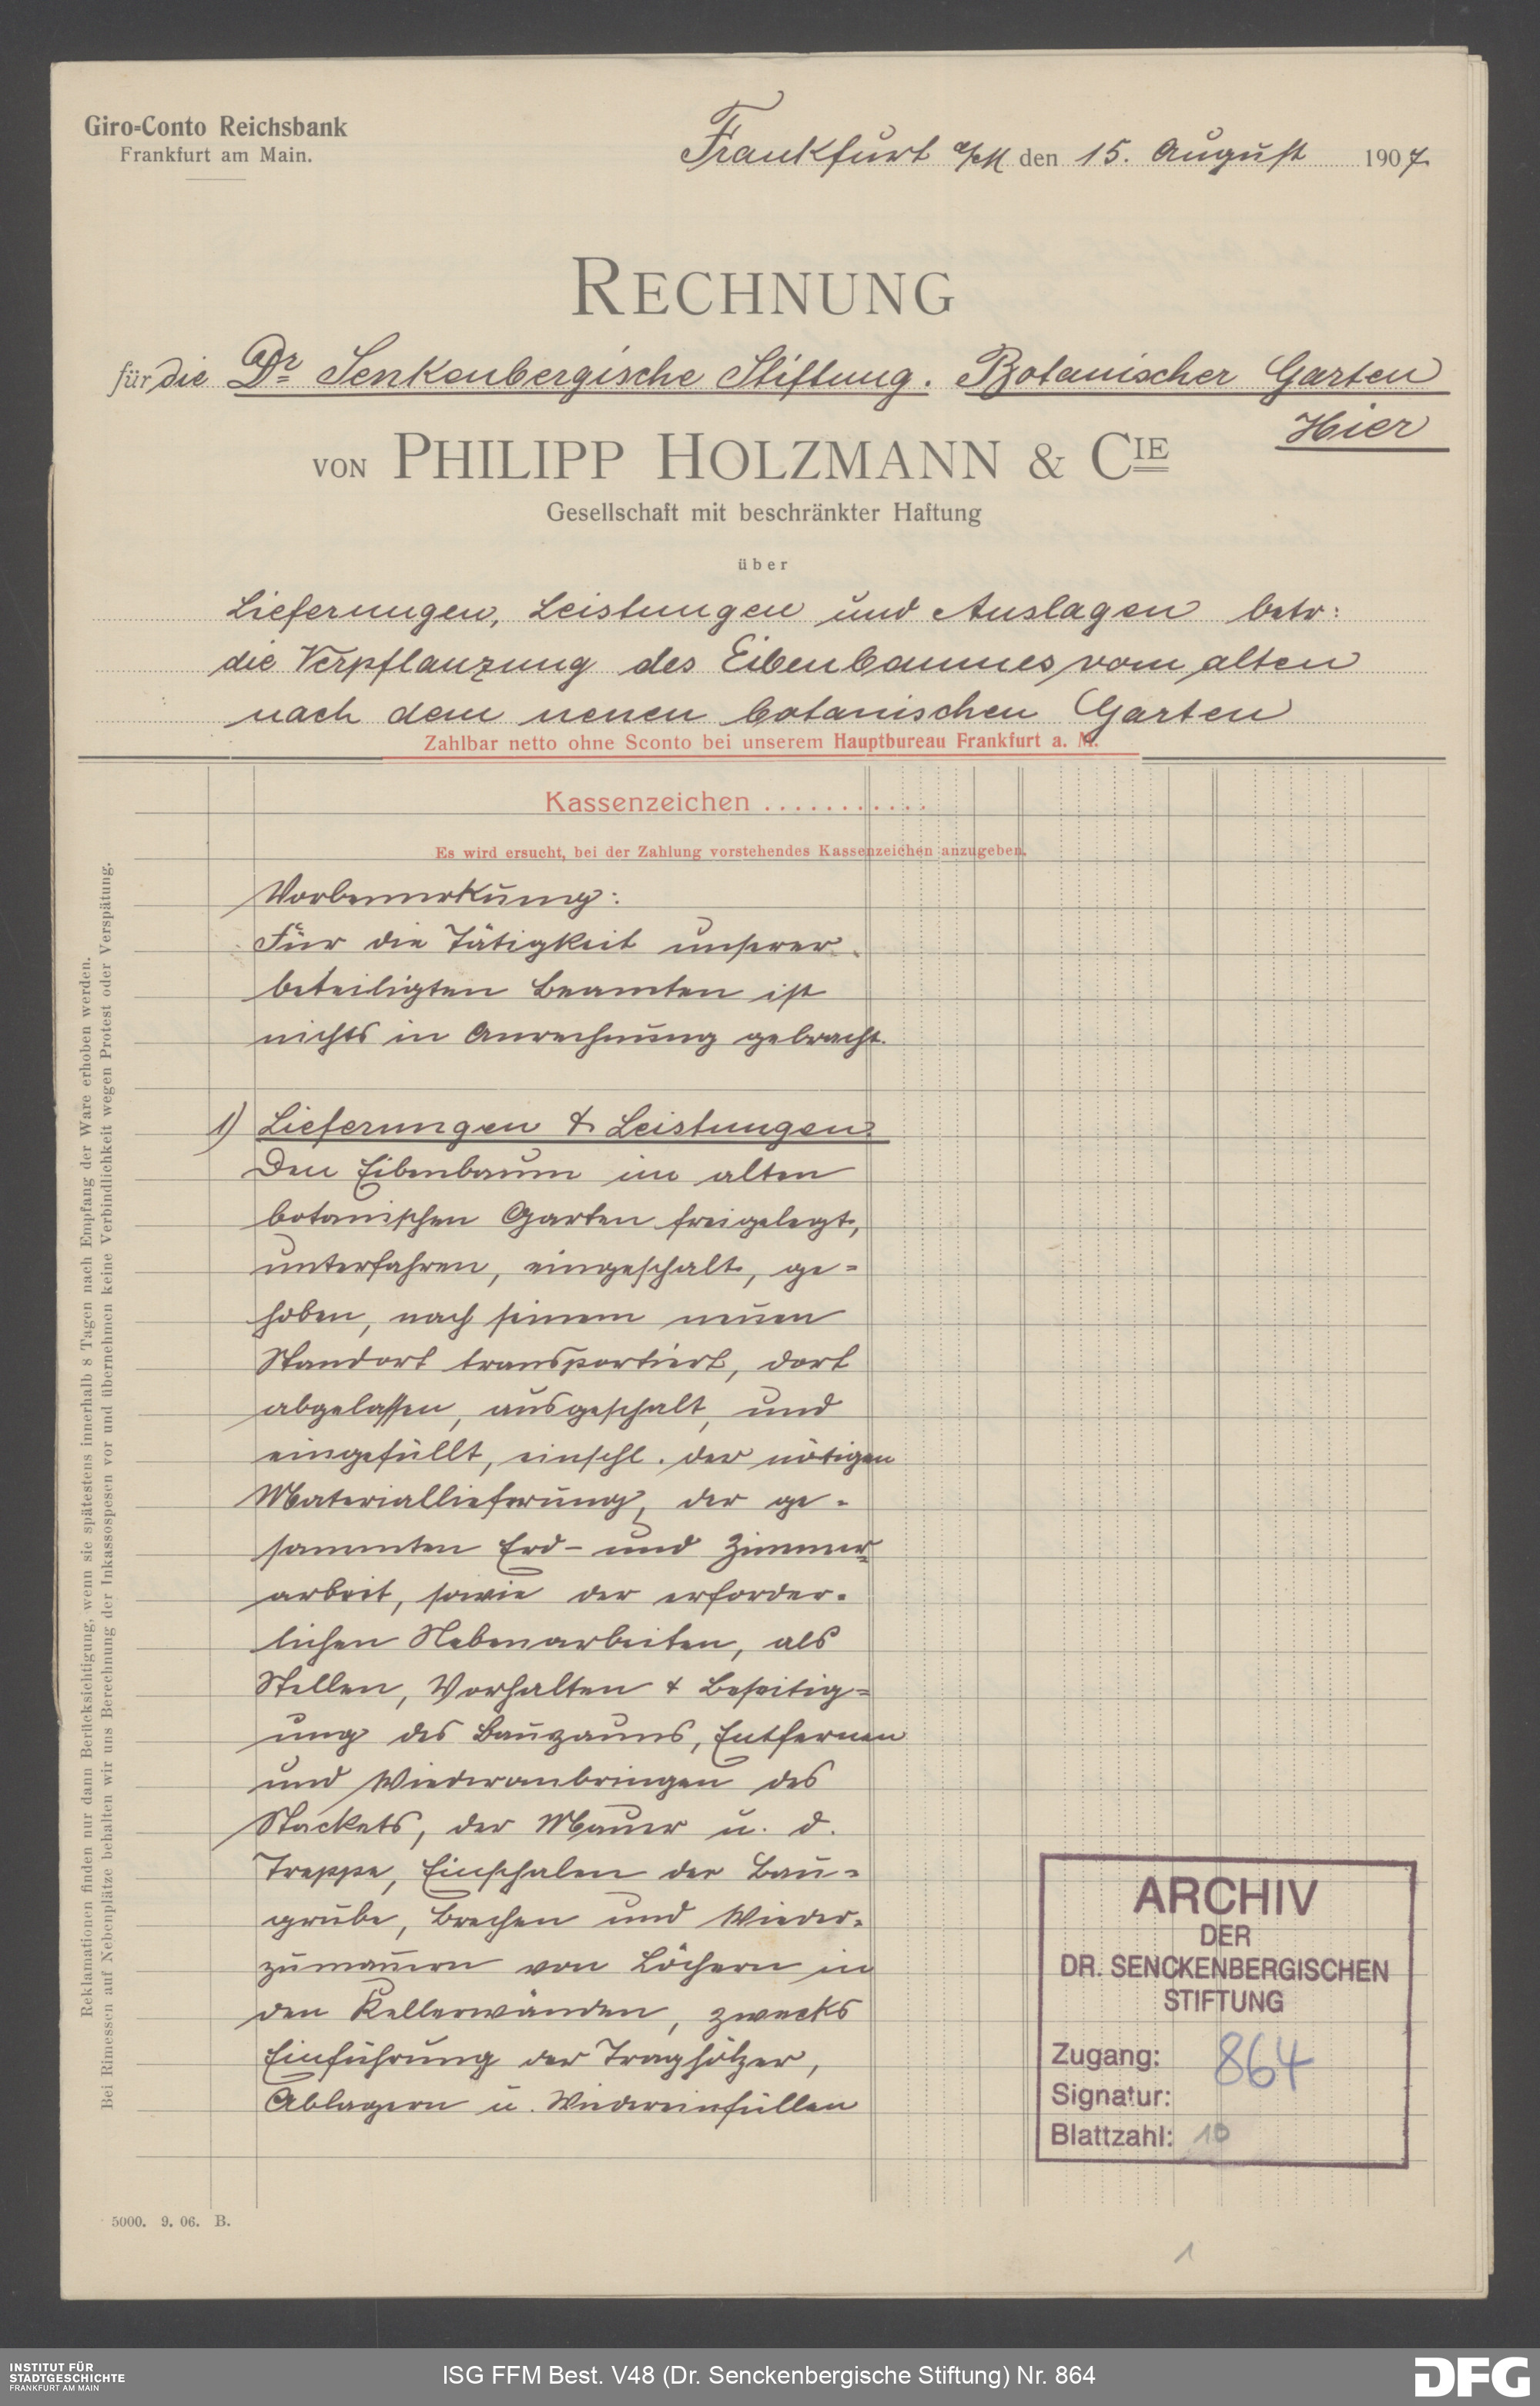 Giro-Conto Reichsbank
Frankfurt am Main.
Frankfurt a/M den 15. August 1907
RECHNUNG
für die Dr Senkenbergische Stiftung. Botanischer Garten
Hier
VON PHILIPP HOLZMANN & CIE
Gesellschaft mit beschränkter Haftung
über
Lieferungen, Leistungen und Auslagen betr:
die Verpflanzung des Eibenbaumes vom alten
nach dem neuen botanischen Garten
Zahlbar netto ohne Sconto bei unserem Hauptbureau Frankfurt a. M.
Kassenzeichen ...........
Es wird ersucht, bei der Zahlung vorstehendes Kassenzeichen anzugeben.
Vorbemerkung:
Für die Tätigkeit unserer
beteiligten Beamten ist
nichts in Anrechnung gebracht.
1) Lieferungen & Leistungen.
Den Eibenbaum im alten
botanischen Garten freigelegt,
unterfahren, eingeschalt, ge-
hoben, nach seinem neuen
Standort transportiert, dort
abgelassen, ausgeschalt, und
eingefüllt, einschl. der nötigen
Materiallieferung, der ge-
sammten Erd- und Zimmer-
arbeit, sowie der erforder-
lichen Nebenarbeiten, als
Stellen, Vorhalten & Beseitig-
ung des Bauzauns, Entfernen
und Wiederanbringen des
Stackets, der Mauer u. d.
Treppe, Einschalen der Bau-
grube, Brechen und Wieder-
zumauern von Löchern in
den Kellerwänden, zwecks
Einführung der Traghölzer,
Ablagern u. Wiedereinfüllen
Reklamationen finden nur dann Berücksichtigung, wenn sie spätestens innerhalb 8 Tagen nach Empfang der Ware erhoben werden.
Bei Rimessen auf Nebenplätze behalten wir uns Berechnung der Inkassospesen vor und übernehmen keine Verbindlichkeit wegen Protest oder Verspätung.
ARCHIV
DER
DR. SENCKENBERGISCHEN
STIFTUNG
Zugang: 864
Signatur:
Blattzahl: 10
5000. 9. 06. B.
1
INSTITUT FÜR
STADTGESCHICHTE
FRANKFURT AM MAIN
ISG FFM Best. V48 (Dr. Senckenbergische Stiftung) Nr. 864
DFG